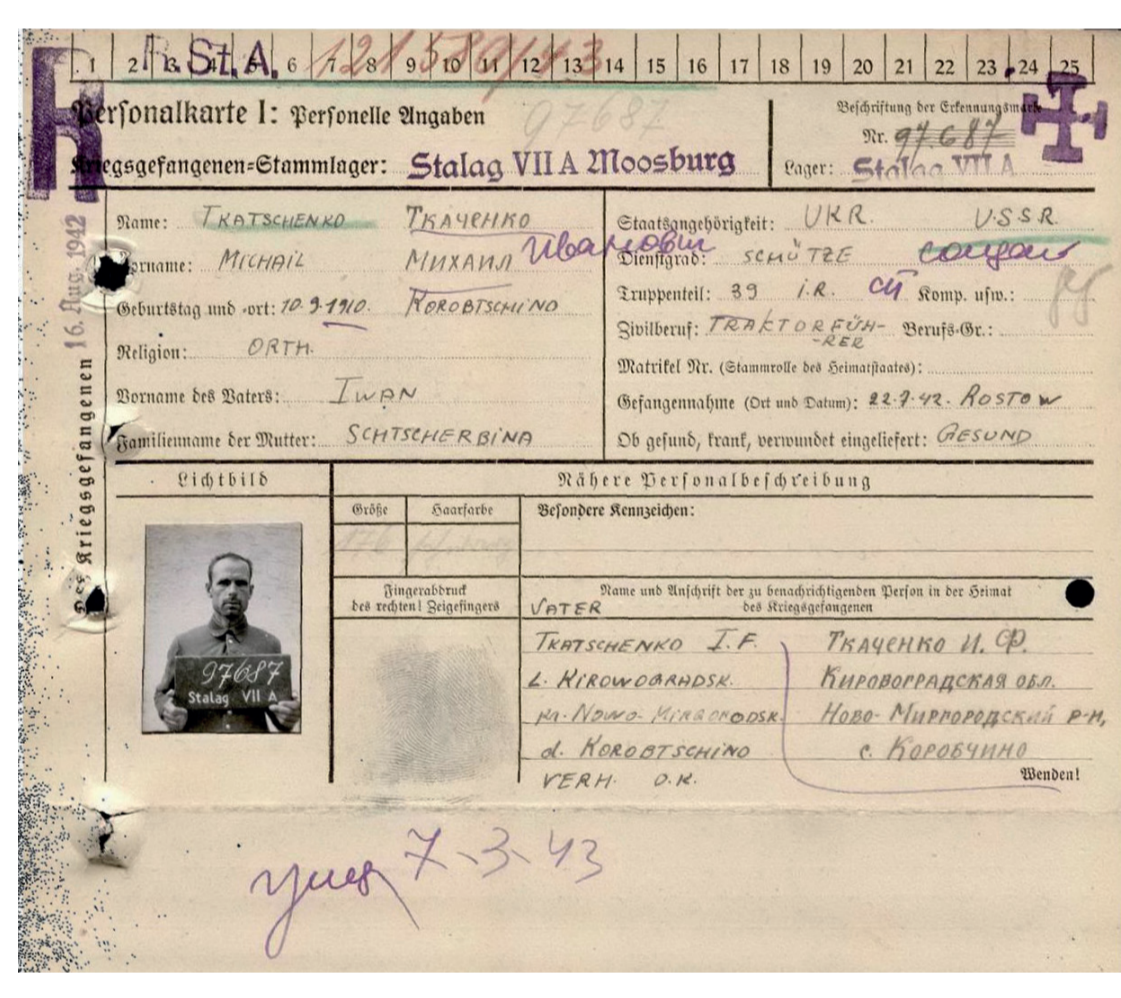 1 2 3 4 5 6 7 8 9 10 11 12 13 14 15 16 17 18 19 20 21 22 23 24 25
R. St. A. 121580/43
R
Personalkarte I: Personelle Angaben
97687
Kriegsgefangenen-Stammlager: Stalag VII A Moosburg
Beschriftung der Erkennungsmarke
Nr. 97687
Lager: Stalag VII A
Name: TKATSCHENKO ТКАЧЕНКО
Vorname: MICHAIL МИХАИЛ Иванович
Geburtstag und -ort: 10.9.1910. KOROBTSCHINO
Religion: ORTH.
Vorname des Vaters: IWAN
Familienname der Mutter: SCHTSCHERBINA
Staatsangehörigkeit: UKR. USSR.
Dienstgrad: SCHÜTZE солдат
Truppenteil: 39 I.R. сп Komp. usw.:
Zivilberuf: TRAKTORFÜH-RER Berufs-Gr.:
Matrikel Nr. (Stammrolle des Heimatstaates):
Gefangennahme (Ort und Datum): 22.7.42. ROSTOW
Ob gesund, krank, verwundet eingeliefert: GESUND
Des Kriegsgefangenen 16. Aug. 1942
Lichtbild
97687
Stalag VII A
Nähere Personalbeschreibung
Größe Haarfarbe
176
Besondere Kennzeichen:
Fingerabdruck
des rechten! Zeigefingers
Name und Anschrift der zu benachrichtigenden Person in der Heimat
des Kriegsgefangenen
VATER
TKATSCHENKO I.F. ТКАЧЕНКО И.Ф.
L. KIROWOGRADSK. КИРОВОГРАДСКАЯ ОБЛ.
NOWO-MIRGORODSK. НОВО-МИРГОРОДСКИЙ Р-Н,
d. KOROBTSCHINO с. КОРОБЧИНО
VERH. O.K.
Wenden!
7-3-43